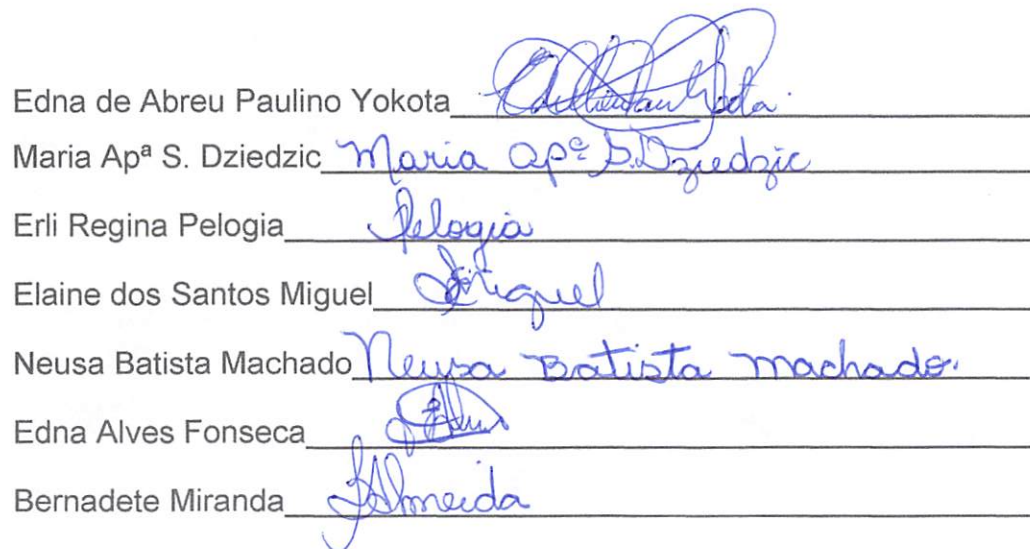 Edna de Abreu Paulino Yokota
Maria Apª S. Dziedzic Maria Apª S. Dziedzic
Erli Regina Pelogia Pelogia
Elaine dos Santos Miguel Miguel
Neusa Batista Machado Neusa Batista machado.
Edna Alves Fonseca
Bernadete Miranda BAlmeida